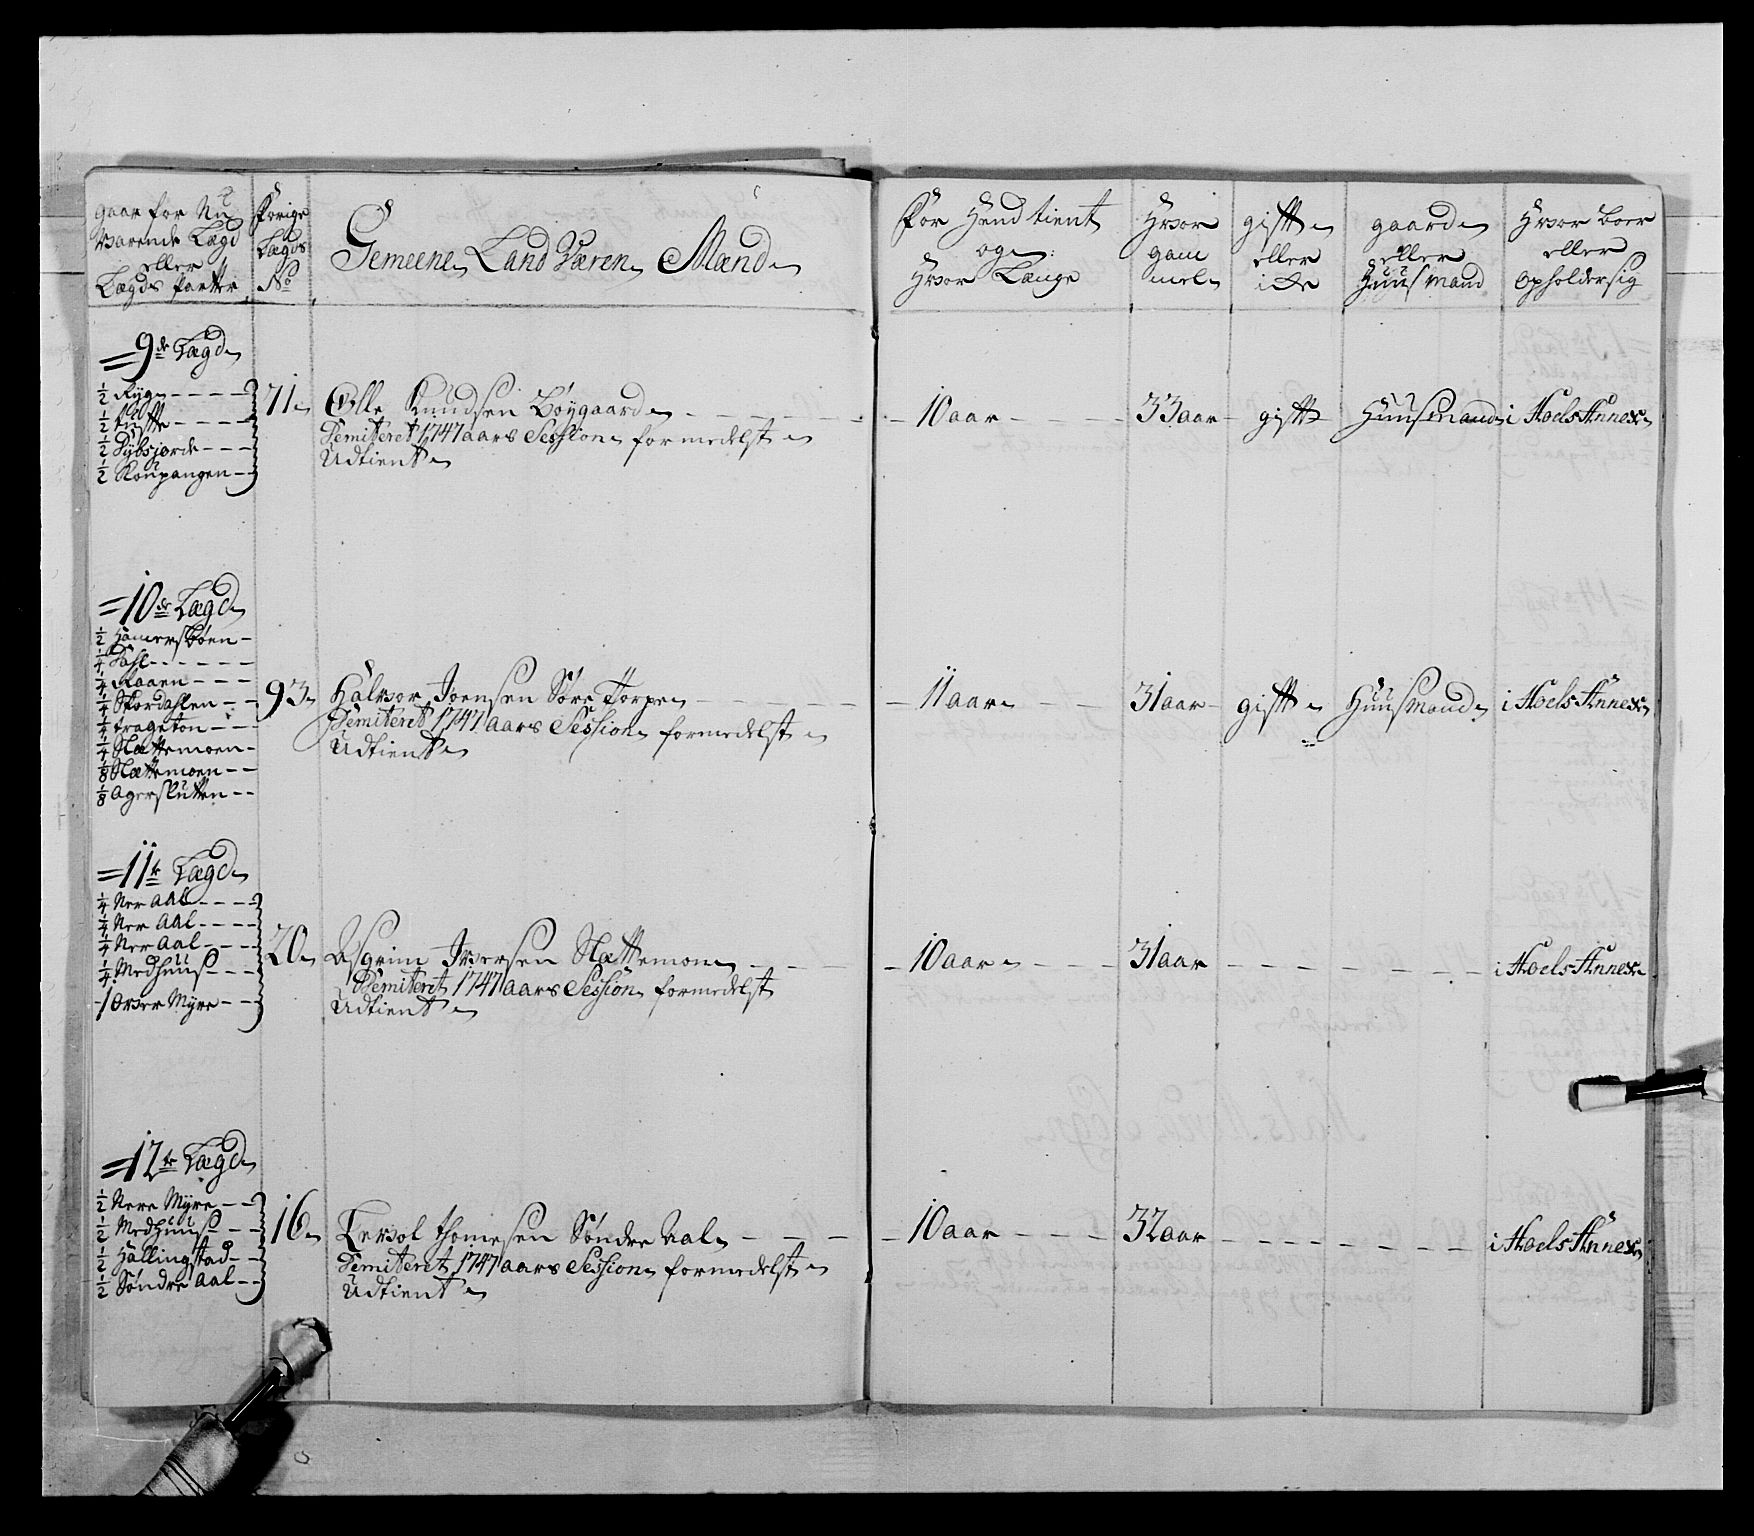 gaar for Nu
Værende Lægd
eller
Lægds Parter
Forige
Lægds
No
Gemeene Land Væren Mænd
For Hend tient
og
Hvor Længe
Hvor
gam
mel
gift
eller
icke
gaard
eller
Huusmand
Hvor boer
eller
opholder sig
9de Lægd
½ Ryg
½ tufte
½ Dybsjorde
½ Koupangen
71
Olle Knudsen Böygaard
Demiteret 1747 aars Session formedelst
Udtient
10 aar
33 aar
gift
Huusmand
i Hoels Annex
10de Lægd
½ Hamersböen
¼ Dahl
¼ Raaen
¼ Skordahlen
¼ trageton
¼ Nættemoen
⅛ Nættemoen
⅛ Agerslutten
93
Halvor Joensen Söre Torpe
Demiteret 1747 aars Session formedelst
Udtient
11 aar
31 aar
gift
Huusmand
i Hoels Annex
11te Lægd
¼ Ner Aal
¼ Ner Aal
¼ Ner Aal
¼ Medhuus
1 Over Myre
20
Asgrim Iversen Nættemoen
Demiteret 1747 aars Session formedelst
Udtient
10 aar
31 aar
i Hoels Annex
12te Lægd
½ Nere Myre
½ Medhuus
½ Hallingstad
½ Söndre Aal
16
Tersol thomesen Söndre Aal
Demiteret 1747 aars Session formedelst
Udtient
10 aar
32 aar
i Hoels Annex